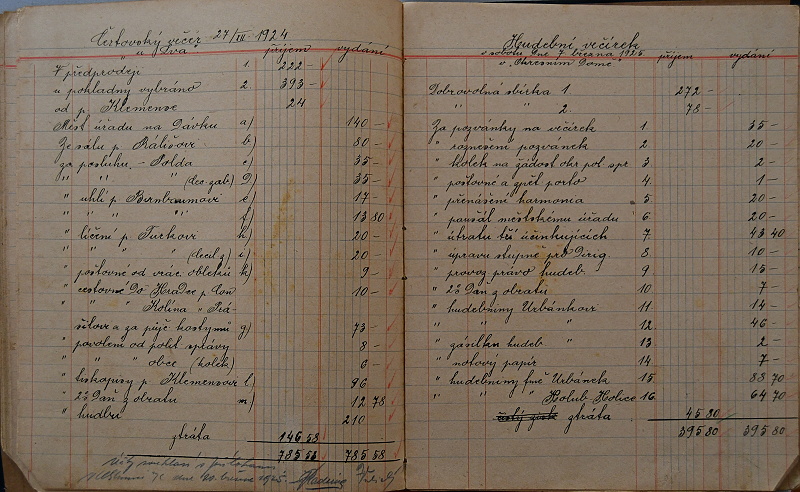 Čertovský věčer 27/XII 1924
příjem vydání
V předprodeji 1. 222 –
u pokladny vybráno 2 393 –
od p. Klemense 24
Měst. úřadu na Dávku a) 140 –
Ze sálu p. Kališovi b) 80 –
za posluhu – Polda c) 35 –
" " " D) 35 –
" uhlí p. Birnbaumovi e) 17 –
" " " " f) 13 80
" líčení p. Turkovi h) 20 –
" " " i) 20 –
" poštovné od vrác. obleků k) 9 –
" cestovné Do Hradce p. 10 –
" " Kolína
a za půjč. kostymů g) 73 –
" povolení od polit správy 8 –
" " " obce (kolek) 6 –
" tiskopisy p. Klemensovi l) 96
" 2% Daň z obratu m) 12 78
" hudbu 210
ztráta 146 58
785 58 785 58
Hudební večírek
v sobotu dne 7 března 1925
v „Okresním Domě"
příjem vydání
Dobrovolná sbírka 1 272 –
" " 2. 78 –
Za pozvánky na večírek 1 35 –
" roznešení pozvánek 2 20 –
" kolek na žádost okr pol spr 3 2 –
" poštovné a zpět porto 4. 1 –
" přenášení harmonia 5 20 –
" paušál městskému úřadu 6 20 –
" útratu účinkujících 7. 43 40
" úpravu stupně pro Dirig. 8. 10 –
" provoz právo hudeb. 9 15 –
" 2% Daň z obratu 10 7 –
" hudebniny Urbánkovi 11 14 –
" " " 12 46 –
" zásilku hudeb " 13 2 –
" notový papír 14 7 –
" hudebniny fmě Urbánek 15 88 70
" " " Holub Holice 16 64 70
čistý zisk ztráta 45 80
395 80 395 80